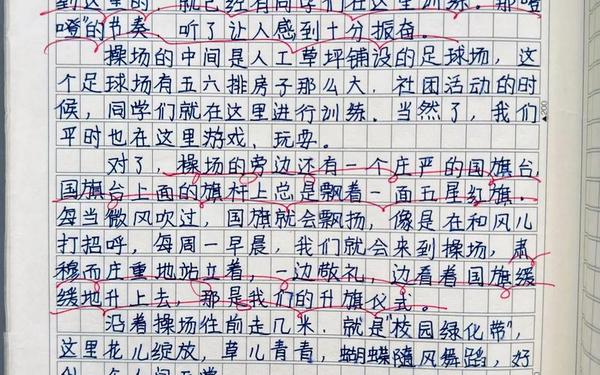 到这里的，就已经有同学们在这里训练。那噔
噔"的节奏，听了让人感到十分振奋。
操场的中间是人工草坪铺设的足球场，这
个足球场有五六排房子那么大，社团活动的时
候，同学们就在这里进行训练。当然了，我们
平时也在这里游戏、玩耍。
对了，操场的旁边还有一个庄严的国旗台，
国旗台上面的旗杆上总是飘着一面五星红旗。
每当微风吹过，国旗就会飘扬，像是在和风儿
打招呼，每周一早晨，我们就会来到操场，肃
穆而庄重地站立着，一边敬礼，边看着国旗缓
缓地升上去，那是我们的升旗仪式。
沿着操场往前走几米，就是"校园绿化带"，
这里花儿绽放，草儿青青，蝴蝶随风舞蹈，好
400